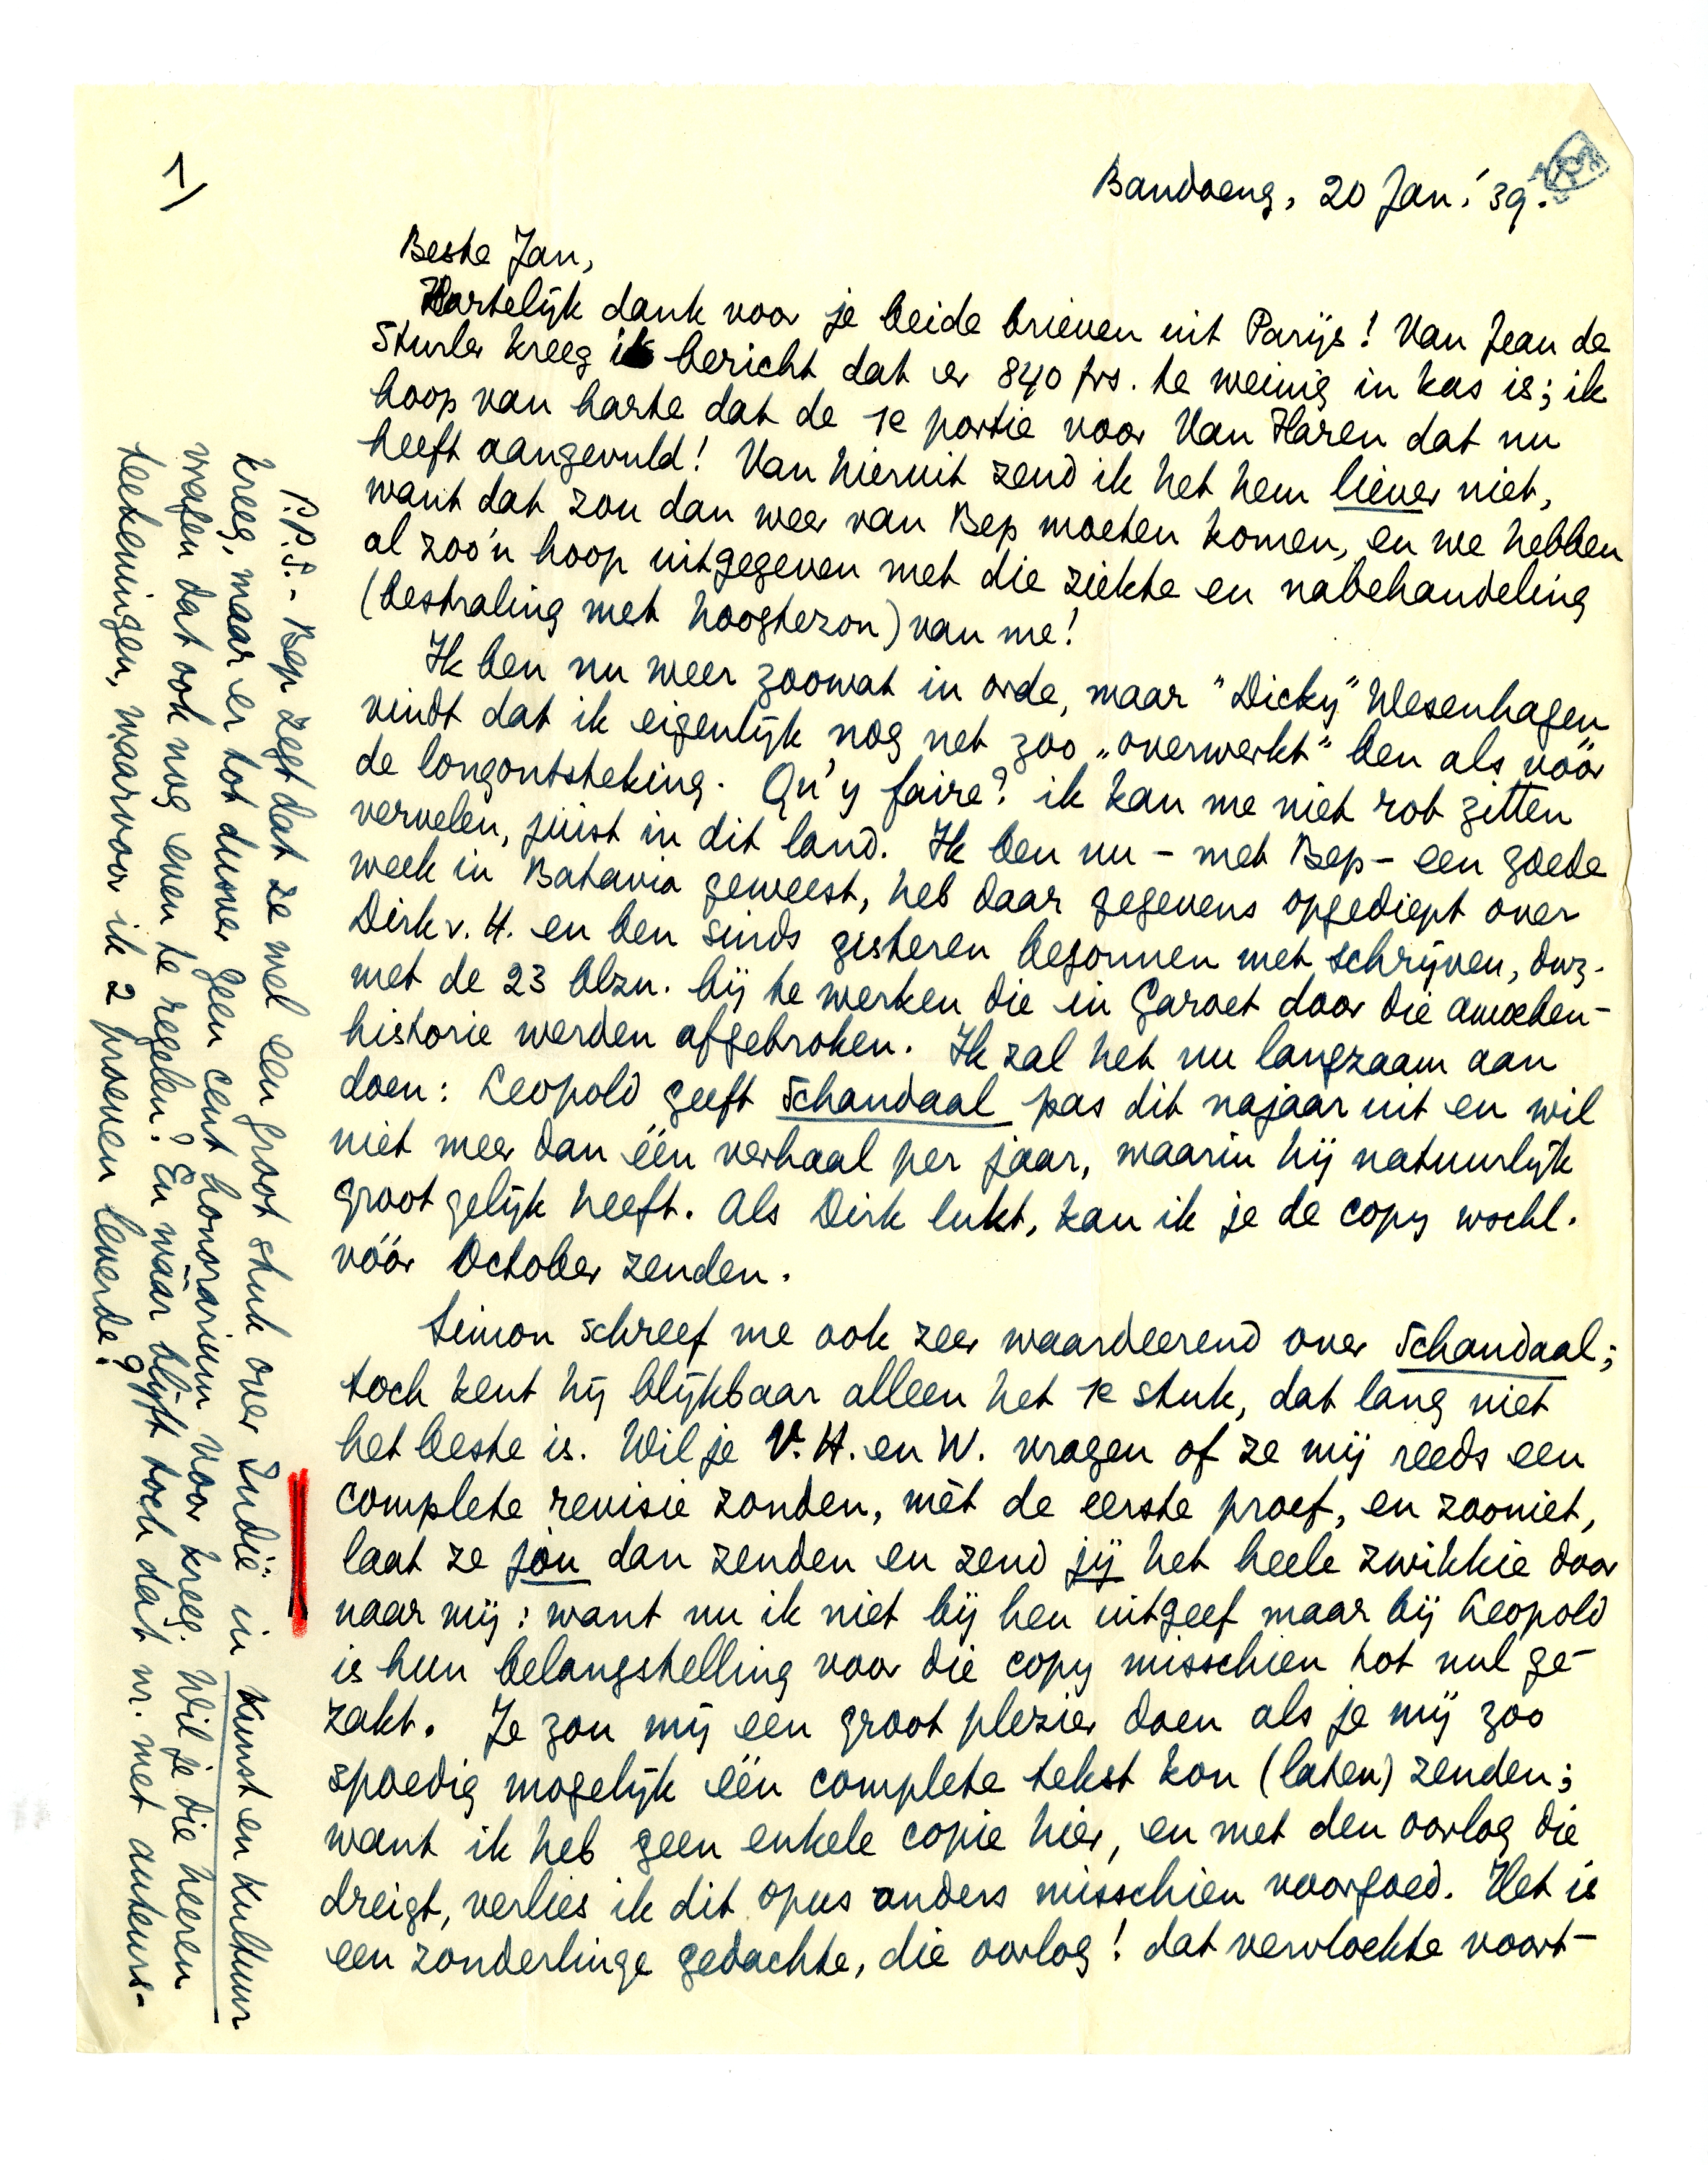 1)
Bandoeng, 20 Jan. '39.
Beste Jan,
Hartelijk dank voor je beide brieven uit Parijs! Van Jean de
Sturler kreeg ik bericht dat er 840 frs. te weinig in kas is; ik
hoop van harte dat de 1e portie voor Van Haren dat nu
heeft aangevuld! Van hieruit zend ik het hem liever niet,
want dat zou dan weer van Bep moeten komen, en we hebben
al zoo'n hoop uitgegeven met die ziekte en nabehandeling
(bestraling met hoogtezon) van me!
Ik ben nu weer zoowat in orde, maar "Dicky" Wesenhagen
vindt dat ik eigenlijk nog net zoo „overwerkt" ben als vóór
de longontsteking. Qu'y faire? ik kan me niet rot zitten
vervelen, júist in dit land. Ik ben nu – met Bep – een goede
week in Batavia geweest, heb daar gegevens opgediept over
Dirk v. H. en ben sinds gisteren begonnen met schrijven, dwz.
met de 23 blzn. bij te werken die in Garoet door die amoeben-
historie werden afgebroken. Ik zal het nu langzaam aan
doen: Leopold geeft Schandaal pas dit najaar uit en wil
niet meer dan één verhaal per jaar, waarin hij natuurlijk
groot gelijk heeft. Als Dirk lukt, kan ik je de copy wschl.
vóór October zenden.
Simon schreef me ook zeer waardeerend over Schandaal;
toch kent hij blijkbaar alleen het 1e stuk, dat lang niet
het beste is. Wil je V. H. en W. vragen of ze mij reeds een
complete revisie zonden, mèt de eerste proef, en zooniet,
laat ze jou dan zenden en zend jij het heele zwikkie door
naar mij: want nu ik niet bij hen uitgeef maar bij Leopold
is hun belangstelling voor die copy misschien tot nul ge-
zakt. Je zou mij een groot plezier doen als je mij zoo
spoedig mogelijk één complete tekst kon (laten) zenden;
want ik heb geen enkele copie hier, en met den oorlog die
dreigt, verlies ik dit opus anders misschien voorgoed. Het is
een zonderlinge gedachte, die oorlog! dat vervloekte voort-
P.P.S. - Bep zegt dat ze wel een groot stuk over Indië in Kunst en Kultuur
kreeg, maar er tot dusver geen cent honorarium voor kreeg. Wil je die heeren
vragen dat ook nog even te regelen? En wáár blijft toch dat nr. met auteurs-
teekeningen, waarvoor ik 2 proeven leverde?